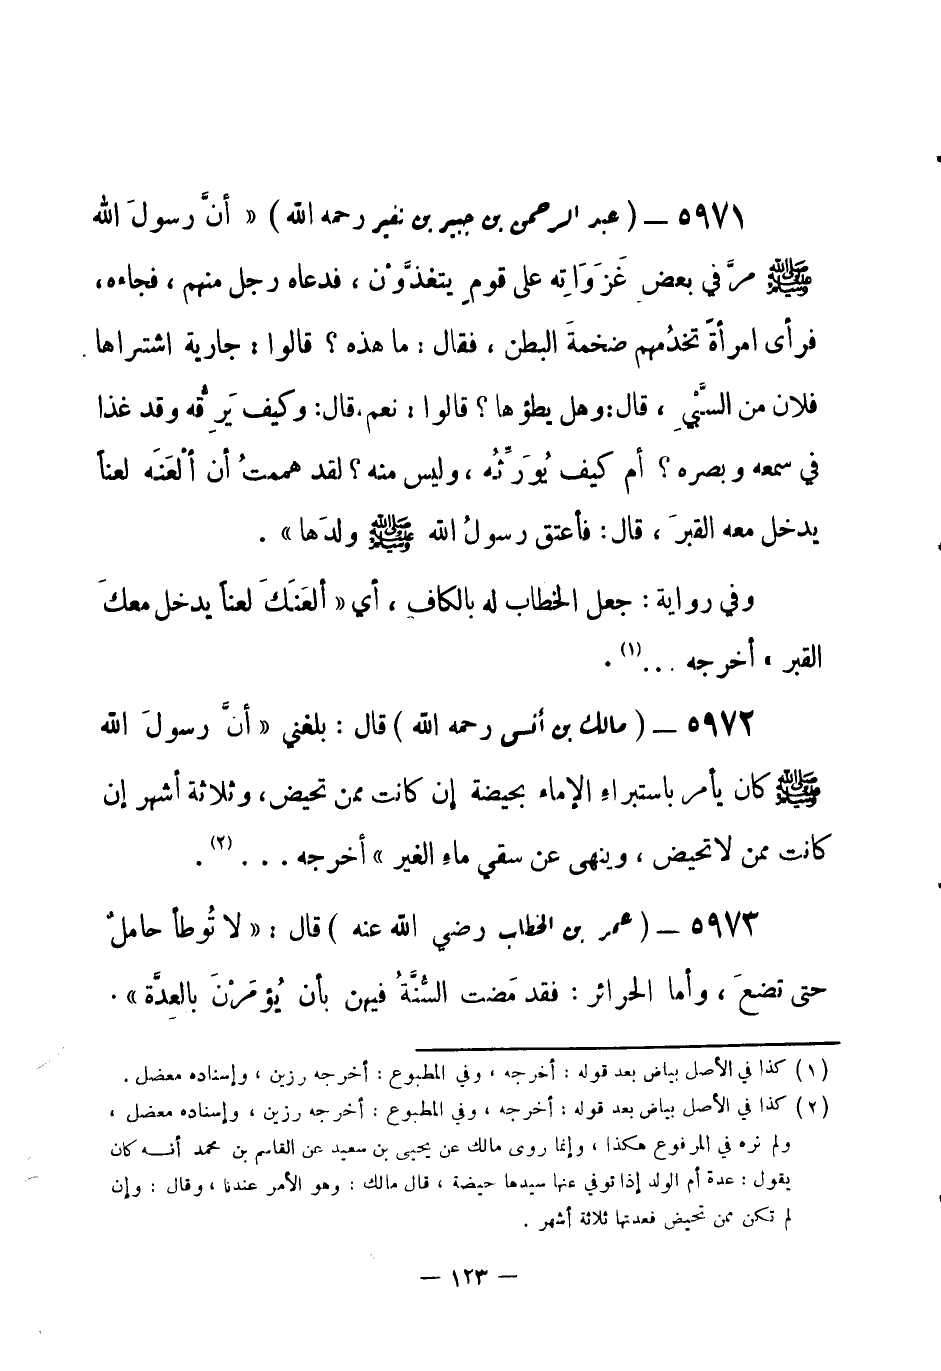 ٥٩٧١ — ( عبد الرحمن بن جبير بن نفير رحمه الله ) « أنَّ رسولَ الله
ﷺ مرَّ في بعض غَزَوَاتِه على قومٍ يتغذَّوْن ، فدعاه رجل منهم ، فجاءه ،
فرأى امرأةً تخدُمهم ضخمةَ البطن ، فقال : ما هذه ؟ قالوا : جارية اشتراها
فلان من السَّبْيِ ، قال : وهل يطؤها ؟ قالوا : نعم ، قال : وكيف يَرِقُّه وقد غذا
في سمعه وبصره ؟ أم كيف يُوَرِّثُه ، وليس منه ؟ لقد هممتُ أن ألْعَنَه لعناً
يدخل معه القبرَ ، قال : فأعتق رسولُ الله ﷺ ولدَها » .
وفي رواية : جعل الخطاب له بالكاف ، أي « ألعَنَكَ لعناً يدخل معكَ
القبر » أخرجه ...(١) .
٥٩٧٢ — ( مالك بن أنس رحمه الله ) قال : بلغني « أنَّ رسولَ الله
ﷺ كان يأمر باستبراءِ الإماء بحيضة إن كانت ممن تحيض ، وثلاثة أشهر إن
كانت ممن لا تحيض ، وينهى عن سقي ماءِ الغير » أخرجه ...(٢) .
٥٩٧٣ — ( عمر بن الخطاب رضي الله عنه ) قال : « لا تُوطأ حاملٌ
حتى تضعَ ، وأما الحرائر : فقد مَضت السُّنَّةُ فيهن بأن يُؤمَرْنَ بالعِدَّة » .
(١) كذا في الأصل بياض بعد قوله : أخرجه ، وفي المطبوع : أخرجه رزين ، وإسناده معضل .
(٢) كذا في الأصل بياض بعد قوله : أخرجه ، وفي المطبوع : أخرجه رزين ، وإسناده معضل ،
ولم نره في المرفوع هكذا ، وإنما روى مالك عن يحيى بن سعيد عن القاسم بن محمد أنــه كان
يقول : عدة أم الولد إذا توفي عنها سيدها حيضة ، قال مالك : وهو الأمر عندنا ، وقال : وإن
لم تكن ممن تحيض فعدتها ثلاثة أشهر .
— ١٢٣ —